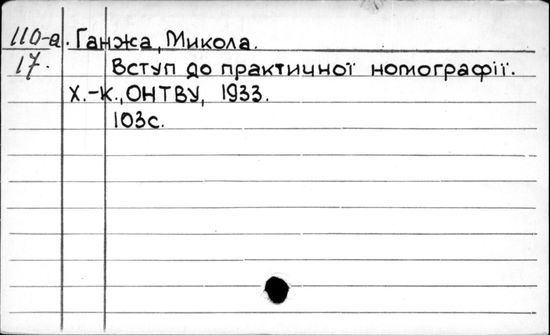 110-а. Ганжа, Микола.
17. Вступ до практичної номографії.
Х.-К., ОНТВУ, 1933.
103с.